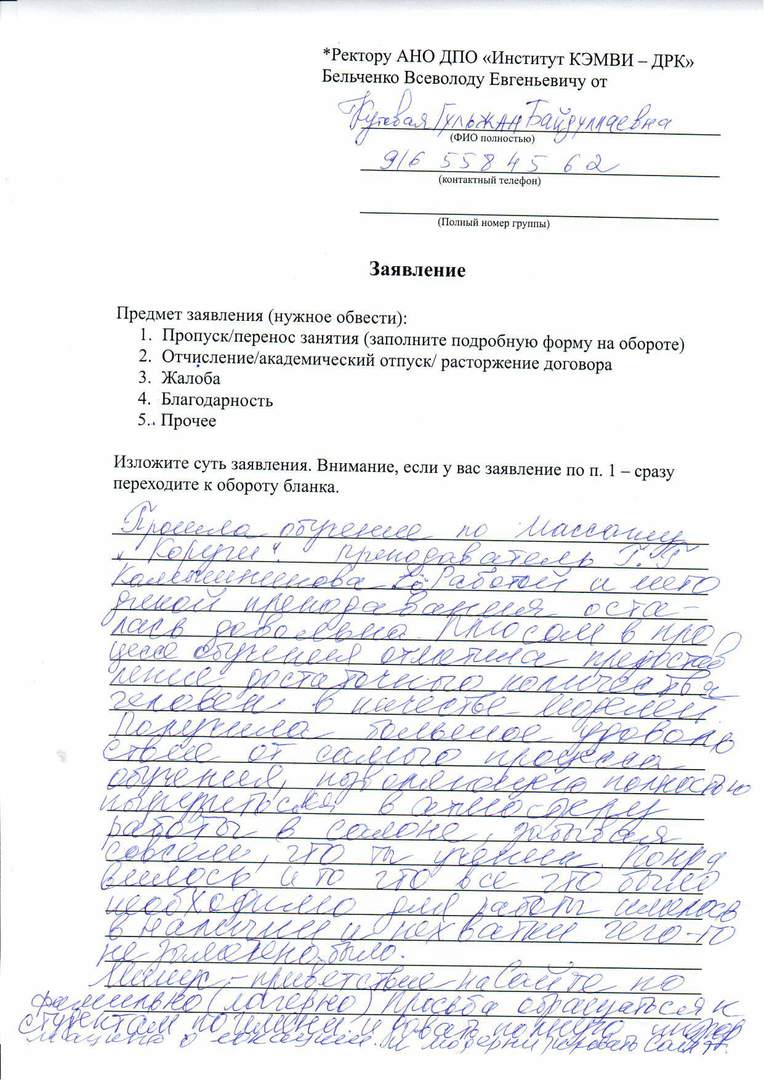 *Ректору АНО ДПО «Институт КЭМВИ – ДРК»
Бельченко Всеволоду Евгеньевичу от
Кутовая Гульжан Байдуллаевна
(ФИО полностью)
916 558 45 62
(контактный телефон)
(Полный номер группы)
Заявление
Предмет заявления (нужное обвести):
1. Пропуск/перенос занятия (заполните подробную форму на обороте)
2. Отчисление/академический отпуск/ расторжение договора
3. Жалоба
4. Благодарность
5.. Прочее
Изложите суть заявления. Внимание, если у вас заявление по п. 1 – сразу
переходите к обороту бланка.
Прошла обучение по массажу
преподаватель
Работой и мето
дикой преподавания оста-
лась довольна. Плюсом в про
цессе обучения отметила предостав
ление достаточного количества
человек в качестве моделей.
Получила большое удоволь
ствие от самого процесса
обучения, позволяющего полностью
погрузиться в атмосферу
работы в салоне, забывая
совсем, что ты ученица. Понра
вилось и то что все что было
необходимо для работы имелось
в наличии и нехватки чего-то
не замечено было.
Минус – приветствие на сайте по
фамильно (лагерно) Просьба обращаться к
студентам по имени и давать полную инфор
мацию о локации. и модернизировать сайт.